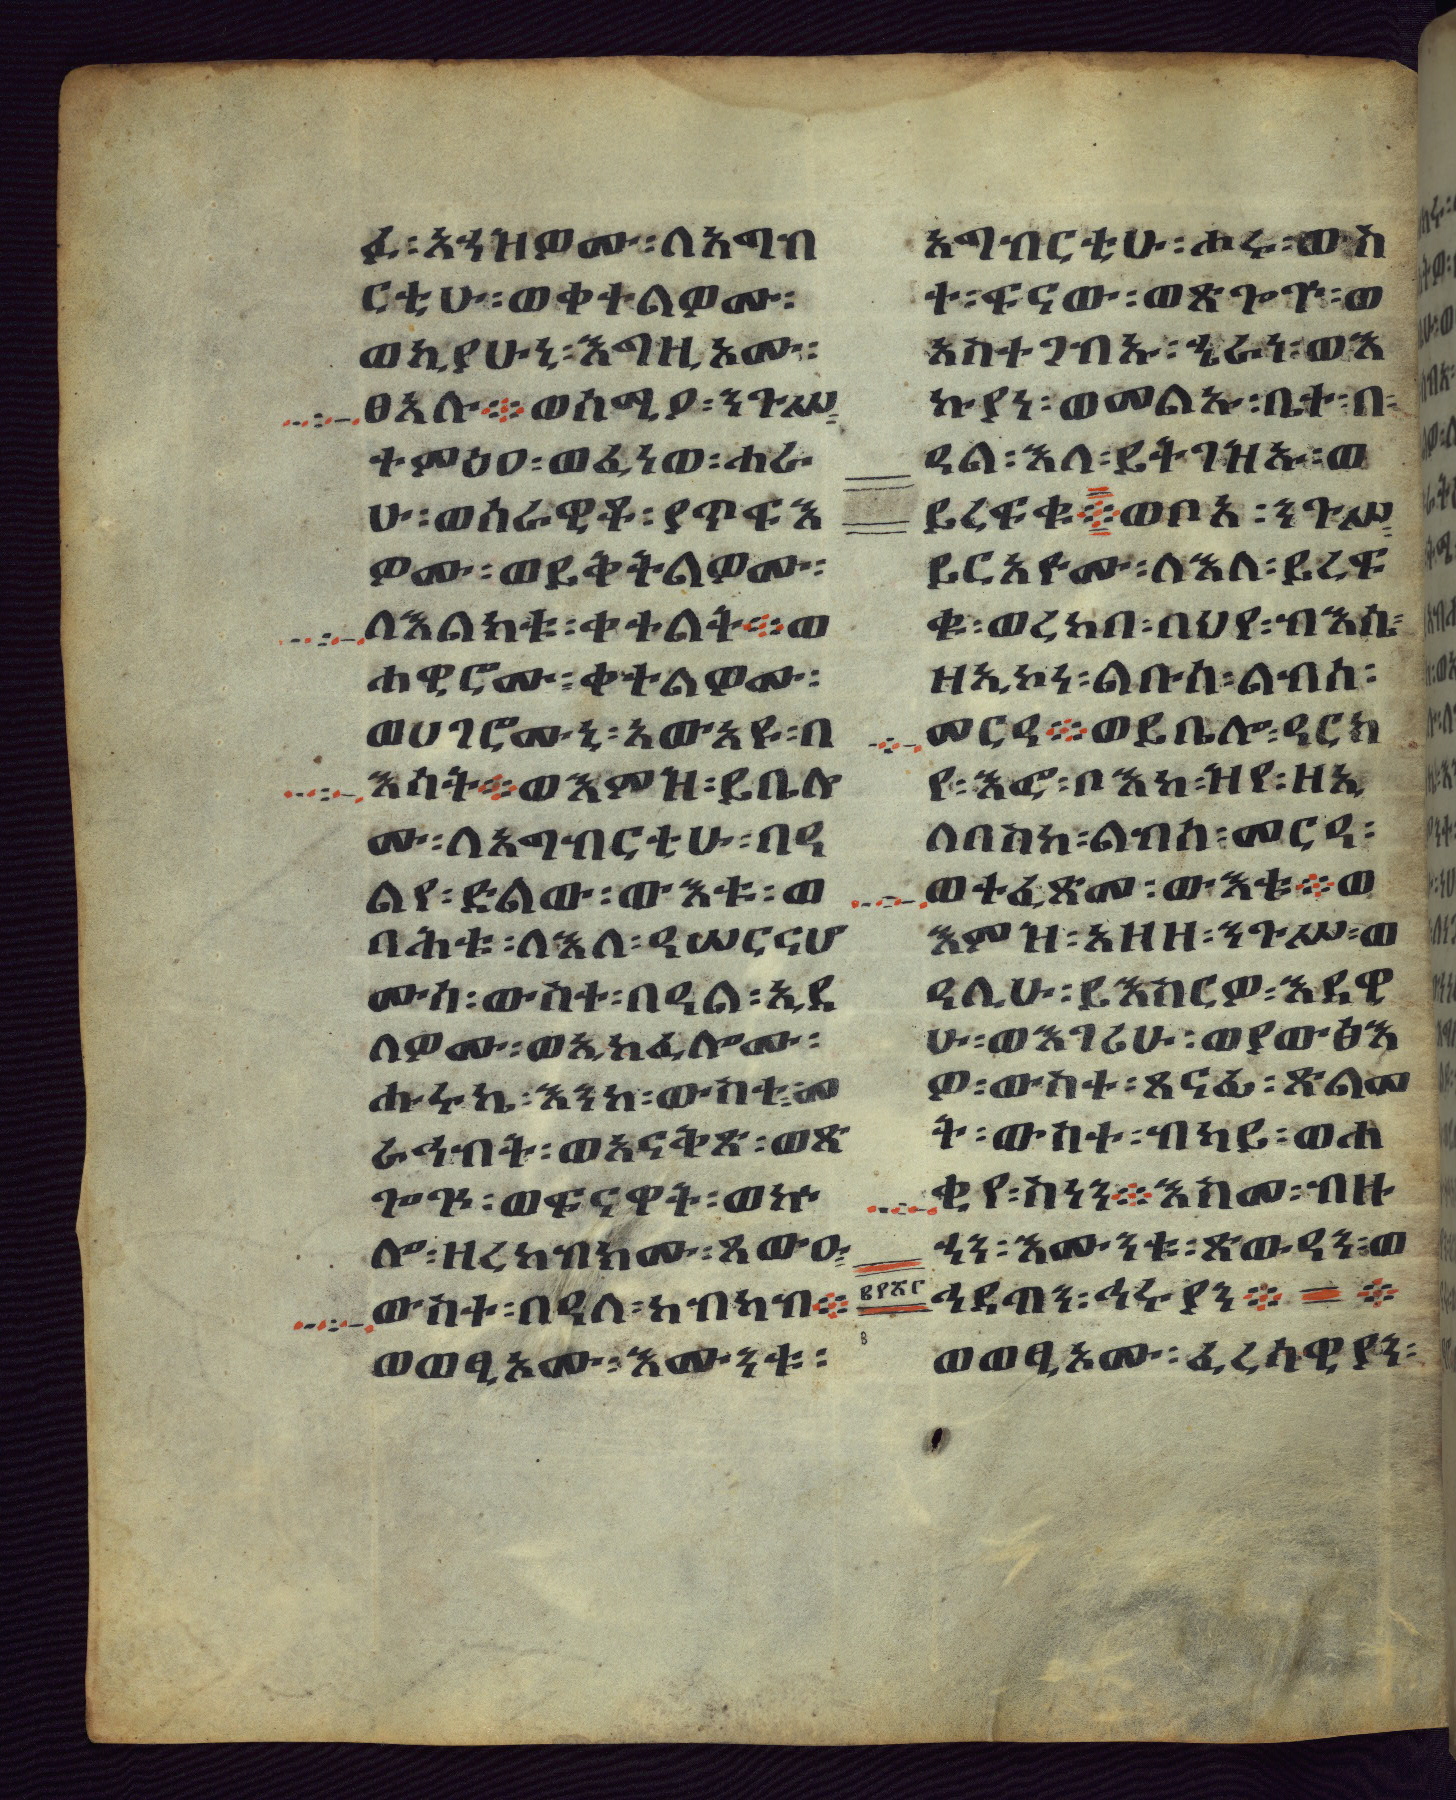 ፉ፡አኀዝዎሙ፡ለአግብ
ርቲሁ፡ወቀተልዎሙ፡
ወኪያሁኒ፡እግዚአሙ፡
ፀአሉ፨ወሰሚዖ፡ንጉሥ፡
ተምዕዐ፡ወፈነወ፡ሐራ
ሁ፡ወሰራዊቶ፡ያጥፍእ
ዎሙ፡ወይቅትልዎሙ፡
ለእልክቱ፡ቀተልት፨ወ
ሐዊሮሙ፡ቀተልዎሙ፡
ወሀገሮሙኒ፡አውአዩ፡በ
እሳት፨ወእምዝ፡ይቤሎ
ሙ፡ለአግብርቲሁ፡በዓ
ልየ፡ድልው፡ውእቱ፡ወ
ባሕቱ፡ለእለ፡ዓሠርናሆ
ሙሰ፡ውስተ፡በዓል፡ኢደ
ለዎሙ፡ወኢከፈሎሙ፡
ሑሩኬ፡እንከ፡ውስተ፡መ
ራኅብት፡ወአናቅጽ፡ወጽ
ጐጕ፡ወፍናዋት፡ወኵ
ሎ፡ዘረከብክሙ፡ጸውዑ፡
ውስተ፡በዓለ፡ከብካብ፨
ወወፂአሙ፡እሙንቱ፡
አግብርቲሁ፡ሖሩ፡ውስ
ተ፡ፍናው፡ወጽጐጕ፡ወ
አስተጋብኡ፡ኄራነ፡ወእ
ኩያነ፡ወመልአ፡ቤተ፡በ፡
ዓል፡እለ፡ይትገዝኡ፡ወ
ይረፍቁ፨ወቦአ፡ንጉሥ፡
ይርአዮሙ፡ለእለ፡ይረፍ
ቁ፡ወረከበ፡በህየ፡ብእሴ፡
ዘኢኮነ፡ልቡሰ፡ልብሰ፡
መርዓ፨ወይቤሎ፡ዓርክ
የ፡እፎ፡ቦእከ፡ዝየ፡ዘኢ
ለባስከ፡ልብሰ፡መርዓ፡
ወተፈጸመ፡ውእቱ፨ወ
እምዝ፡አዘዘ፡ንጉሥ፡ወ
ዓሊሁ፡ይእስርዎ፡እዴዊ
ሁ፡ወእገሪሁ፡ወያውፅእ
ዎ፡ውስተ፡ጸናፊ፡ጽልመ
ት፡ውስተ፡ብካይ፡ወሐ
ቂየ፡ስነን፨እስመ፡ብዙ
ኃን፡እሙንቱ፡ጽውዓን፡ወ
ኅዳብን፡ኅሩያን፨ ፨
ወወፂአሙ፡ፈሪሳዊያን፡